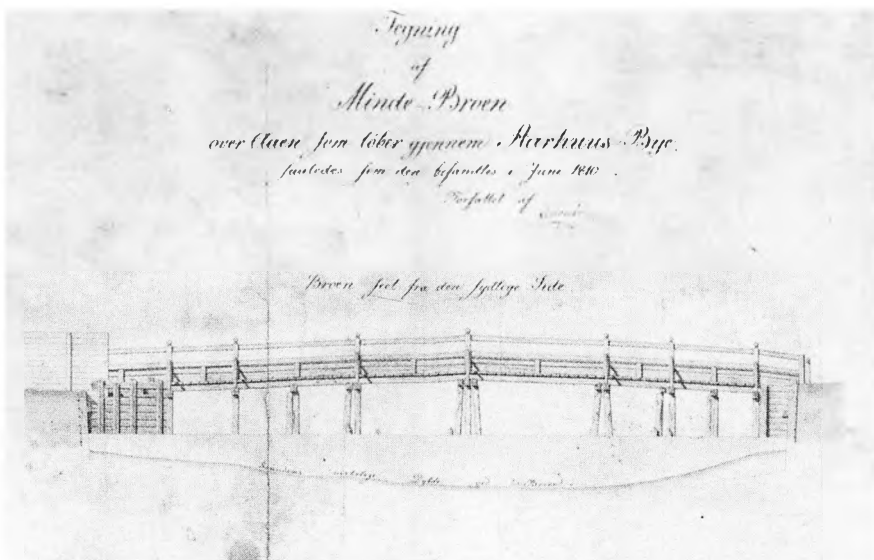 Tegning
af
Minde-Broen
over Aaen som løber gjennem Aarhuus Bye.
saaledes som den befandtes i Juni 1810.
Forfattet af
Broen seet fra den sydlige Side